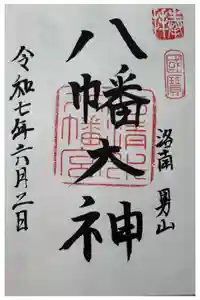 奉拝
國寳
洛南 男山
八幡大神
令和七年六月二日